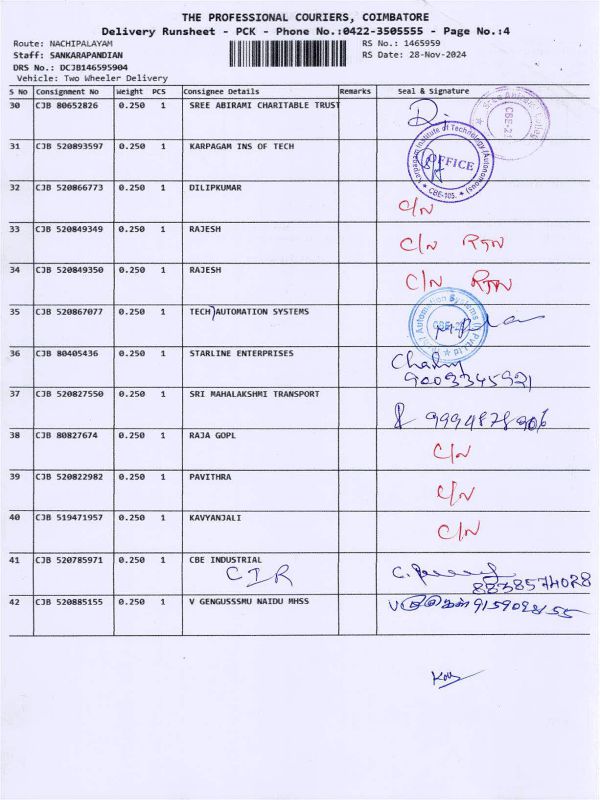 THE PROFESSIONAL COURIERS, COIMBATORE
Delivery Runsheet - PCK - Phone No.:0422-3505555 - Page No.:4
Route: NACHIPALAYAM RS No.: 1465959
Staff: SANKARAPANDIAN RS Date: 28-Nov-2024
DRS No.: DCJB146595904
Vehicle: Two Wheeler Delivery
S No Consignment No Weight PCS Consignee Details Remarks Seal & Signature
30 CJB 80652826 0.250 1 SREE ABIRAMI CHARITABLE TRUST
31 CJB 520893597 0.250 1 KARPAGAM INS OF TECH
Karpagam Institute of Technology (Autonomous)
OFFICE
CBE-105.
32 CJB 520866773 0.250 1 DILIPKUMAR C/N
33 CJB 520849349 0.250 1 RAJESH C/N RTN
34 CJB 520849350 0.250 1 RAJESH C/N RTN
35 CJB 520867077 0.250 1 TECH AUTOMATION SYSTEMS
Automation Systems
36 CJB 80405436 0.250 1 STARLINE ENTERPRISES
9003345921
37 CJB 520827550 0.250 1 SRI MAHALAKSHMI TRANSPORT 9994878906
38 CJB 80827674 0.250 1 RAJA GOPL C/N
39 CJB 520822982 0.250 1 PAVITHRA C/N
40 CJB 519471957 0.250 1 KAVYANJALI C/N
41 CJB 520785971 0.250 1 CBE INDUSTRIAL
CIR 8838574028
42 CJB 520885155 0.250 1 V GENGUSSSMU NAIDU MHSS